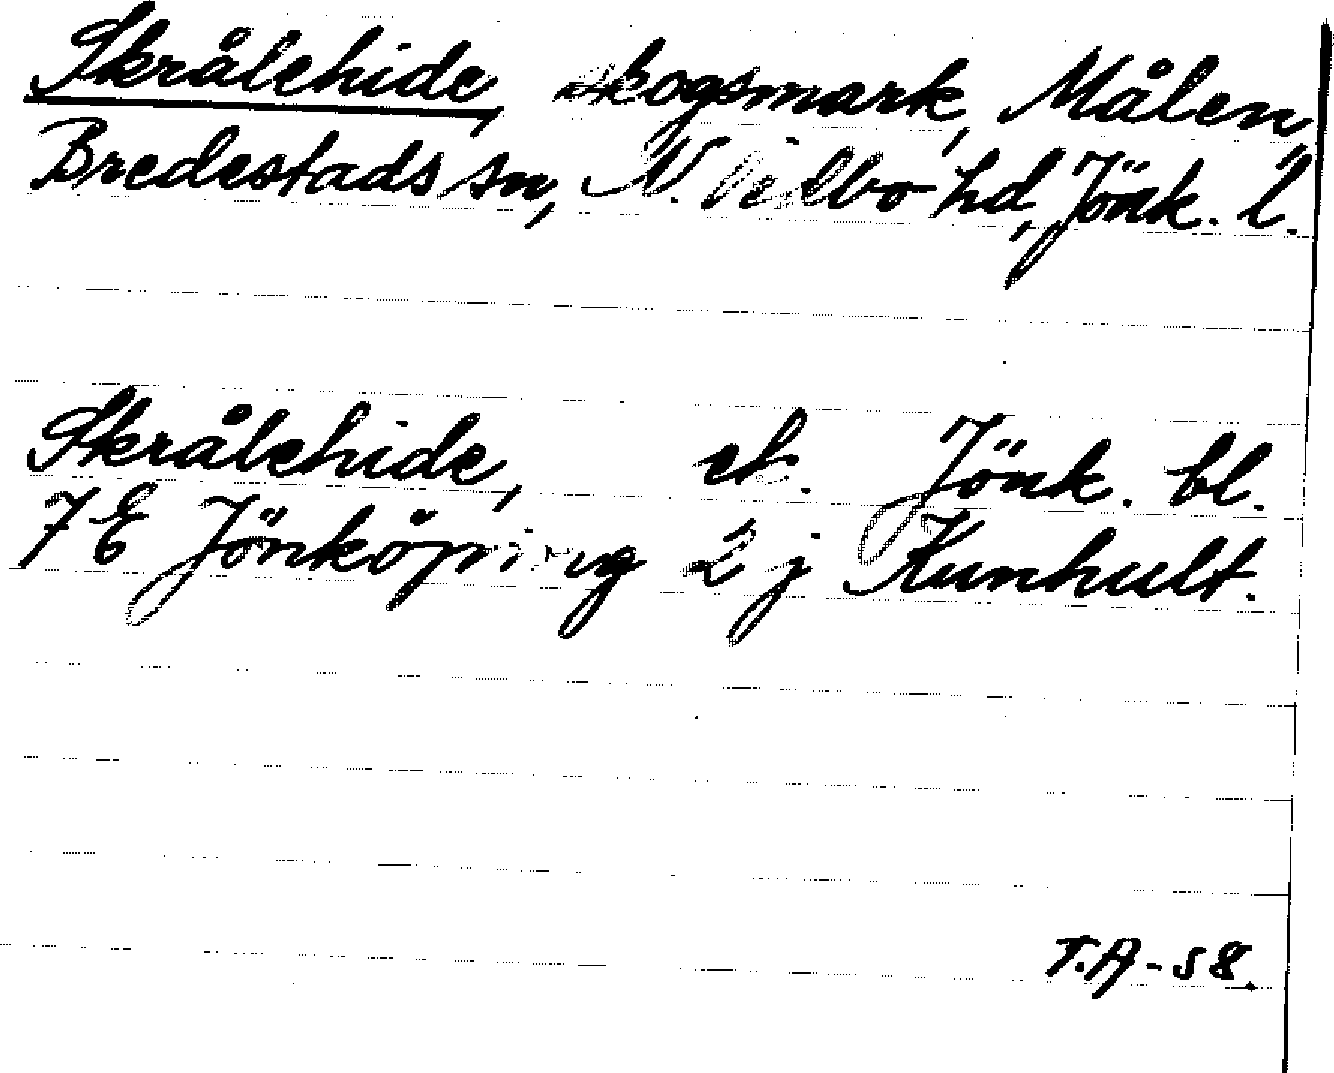 Skrålehide, skogsmark, Målen,
Bredestads sn, N. Vedbo hd, Jönk. l.
Skrålehide, ek. Jönk. bl.
7 E Jönköping 2 j Kunhult.
T.A-58.